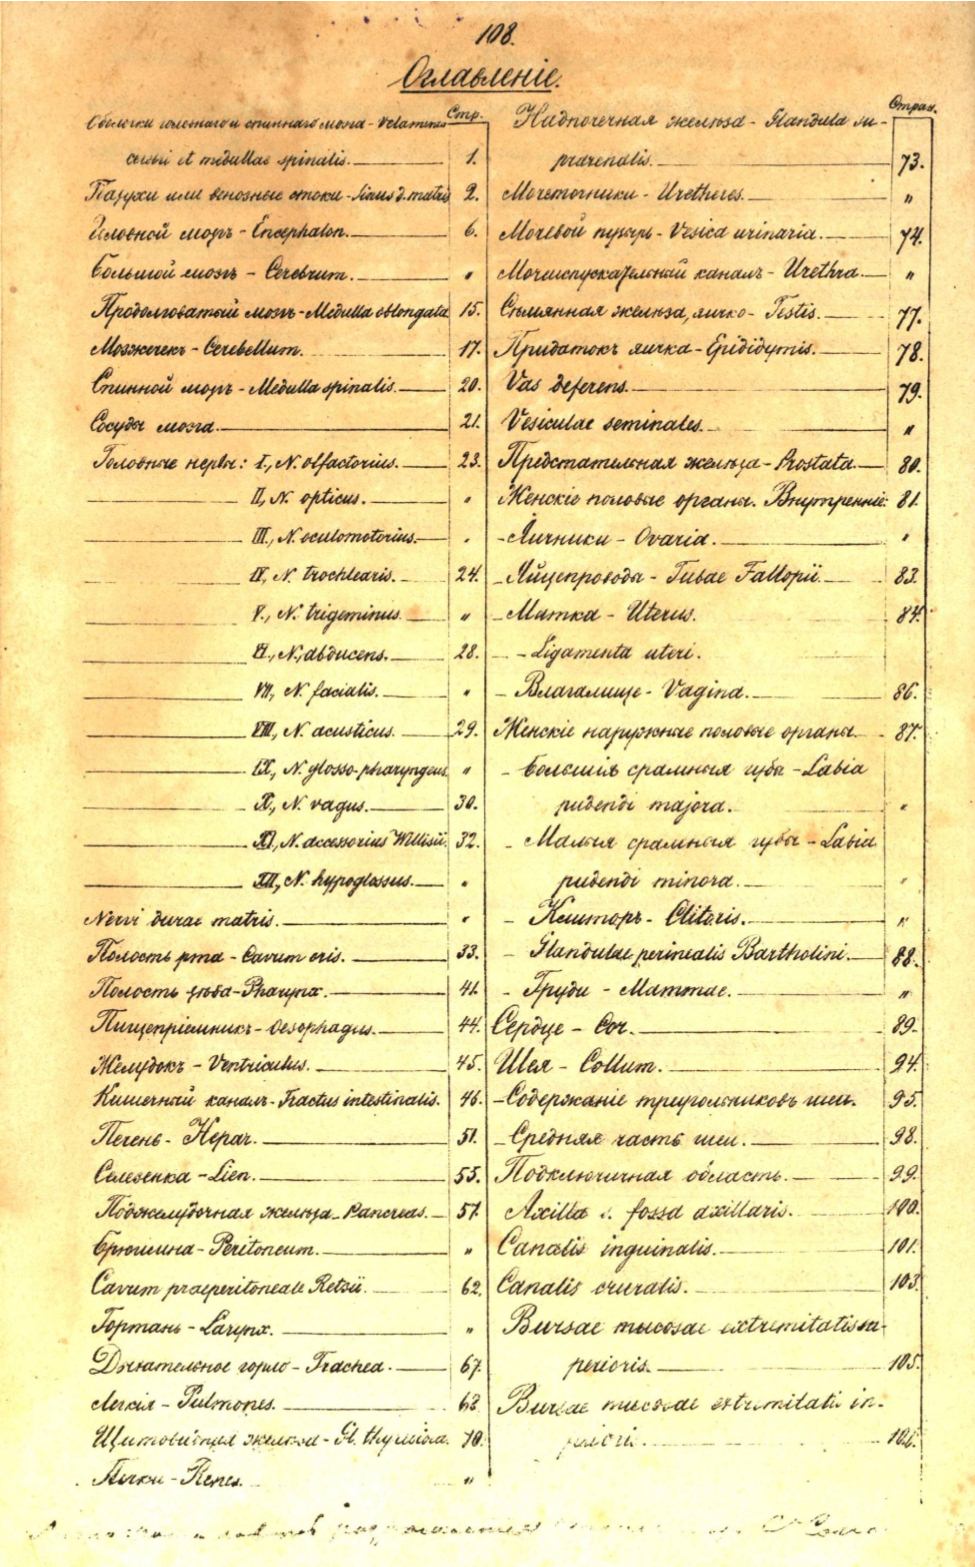 108.
Оглавленіе.
Стр.
Оболочки головнаго и спиннаго мозга - Velamenta
cerebri et medullae spinalis. 1.
Пазухи или венозные стоки - Sinus d. matris 2.
Головной мозгъ - Encephalon. 6.
Большой мозгъ - Cerebrum. "
Продолговатый мозгъ - Medulla oblongata 15.
Мозжечекъ - Cerebellum. 17.
Спинной мозгъ - Medulla spinalis. 20.
Сосуды мозга 21.
Головные нервы: I., N. olfactorius. 23.
II., N. opticus. "
III., N. oculomotorius. "
IV., N. trochlearis. 24.
V., N. trigeminus. "
VI., N. abducens. 28.
VII., N. facialis. "
VIII., N. acusticus. 29.
IX., N. glosso-pharyngeus. "
X., N. vagus. 30.
XI., N. accessorius Willisii. 32.
XII., N. hypoglossus. "
Nervi durae matris. "
Полость рта - Cavum oris. 33.
Полость зѣва - Pharynx. 41.
Пищепріемникъ - Oesophagus. 44.
Желудокъ - Ventriculus. 45.
Кишечный каналъ - Tractus intestinalis. 46.
Печень - Hepar. 51.
Селезенка - Lien. 55.
Поджелудочная железа - Pancreas. 57.
Брюшина - Peritoneum. "
Cavum praeperitoneale Retzii. 62.
Гортань - Larynx. "
Дыхательное горло - Trachea. 67.
Легкія - Pulmones. 68.
Щитовидная железа - Gl. thyreoidea. 70.
Почки - Renes. "
Стран.
Надпочечная железа - Glandula su-
prarenalis. 73.
Мочеточники - Uretheres. "
Мочевой пузырь - Vesica urinaria. 74.
Мочеиспускательный каналъ - Urethra. "
Сѣмянная железа, яичко - Testis. 77.
Придатокъ яичка - Epididymis. 78.
Vas deferens. 79.
Vesiculae seminales. "
Предстательная железа - Prostata. 80.
Женскіе половые органы. Внутренніе: 81.
- Яичники - Ovaria. "
- Яйцепроводы - Tubae Fallopii. 83.
- Матка - Uterus. 84.
- - Ligamenta uteri.
- Влагалище - Vagina. 86.
Женскіе наружные половые органы. 87.
- Большія срамныя губы - Labia
pudendi majora. "
- Малыя срамныя губы - Labia
pudendi minora. "
- Клиторъ - Clitoris. "
- Glandulae perinealis Bartholini. 88.
- Груди - Mammae. "
Сердце - Cor. 89.
Шея - Collum. 94.
- Содержаніе треугольниковъ шеи. 95.
- Средняя часть шеи. 98.
Подключичная область. 99.
Axilla s. fossa axillaris. 100.
Canalis inguinalis. 101.
Canalis cruralis. 103.
Bursae mucosae extremitatis su-
perioris. 105.
Bursae mucosae extremitatis in-
feriori. 106.